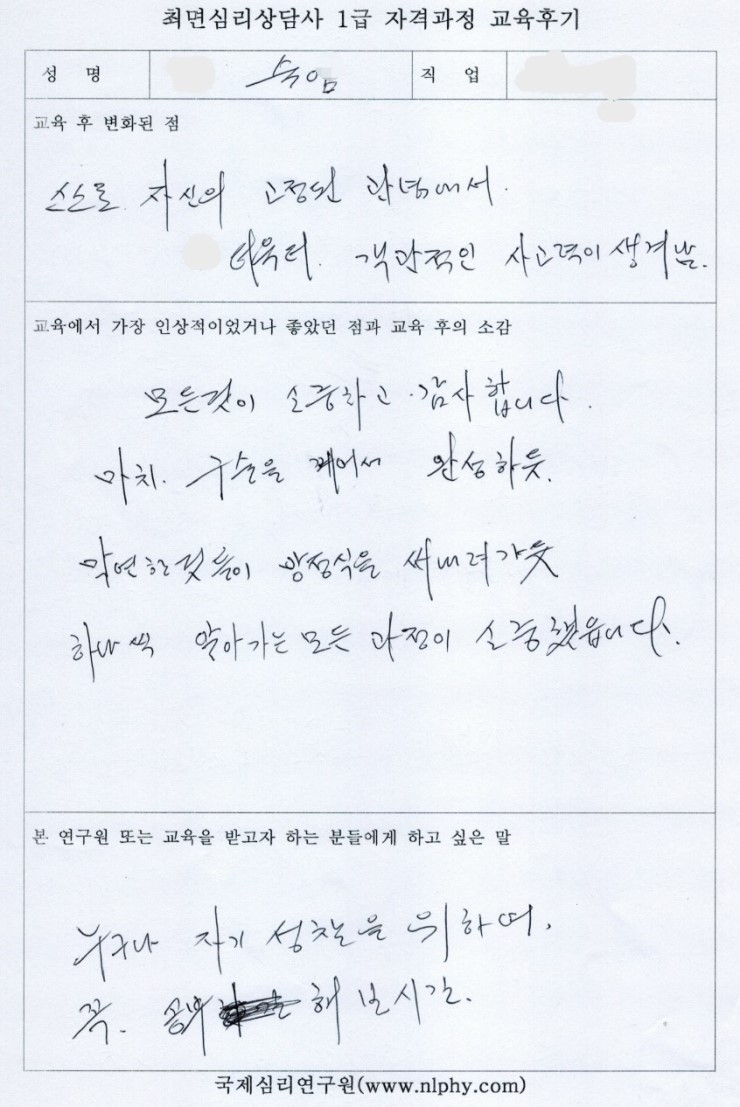 최면심리상담사 1급 자격과정 교육후기
성 명 숙임 직 업
교육 후 변화된 점
스스로 자신의 고정된 관념에서.
더욱더. 객관적인 사고력이 생겨남.
교육에서 가장 인상적이었거나 좋았던 점과 교육 후의 소감
모든것이 소중하고 감사합니다.
마치. 구술을 꿰어서 완성하듯.
막연한것들이 방정식을 써내려가듯
하나씩 알아가는 모든 과정이 소중했읍니다.
본 연구원 또는 교육을 받고자 하는 분들에게 하고 싶은 말
누구나 자기 성찰을 위하며,
꼭. 공부 해 보시길.
국제심리연구원(www.nlphy.com)